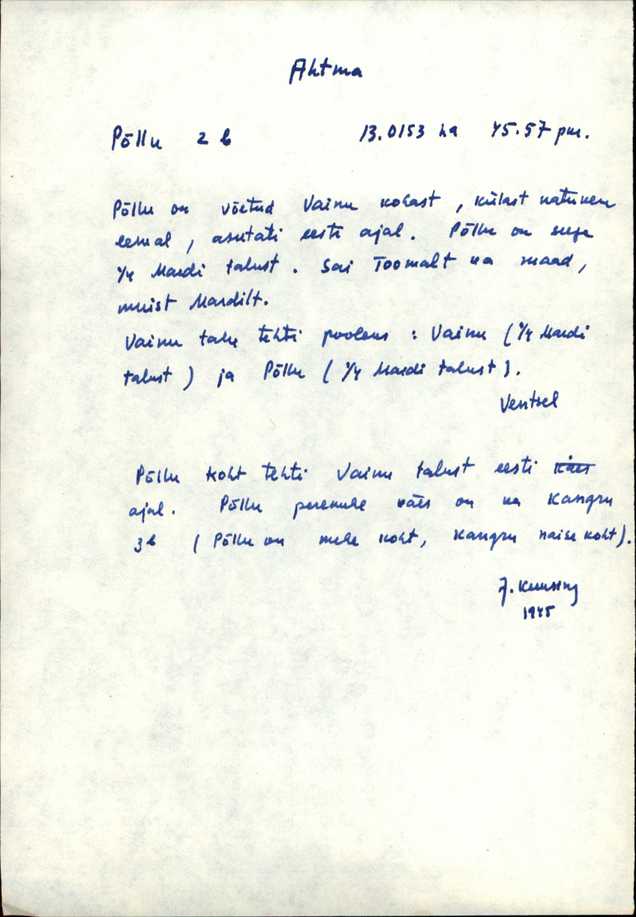 Ahtma
Põllu 2 b 13.0153 ha 45.57 pm.
Põllu on võetud Vainu kohast, külast natuken
eemal, asutati eesti ajal. Põllu on
1/4 Mardi talust. Sai Toomalt ka maad,
muist Mardilt.
Vainu talu tehti pooleus : Vainu (1/4 Mardi
talust) ja Põllu (1/4 Mardi talust).
Ventsel
Põllu koht tehti Vainu talust eesti käes
ajal. Põllu peremehe käes on ka Kangru
3b (Põllu on mehe koht, Kangru naise koht).
J. Kuusing
1945